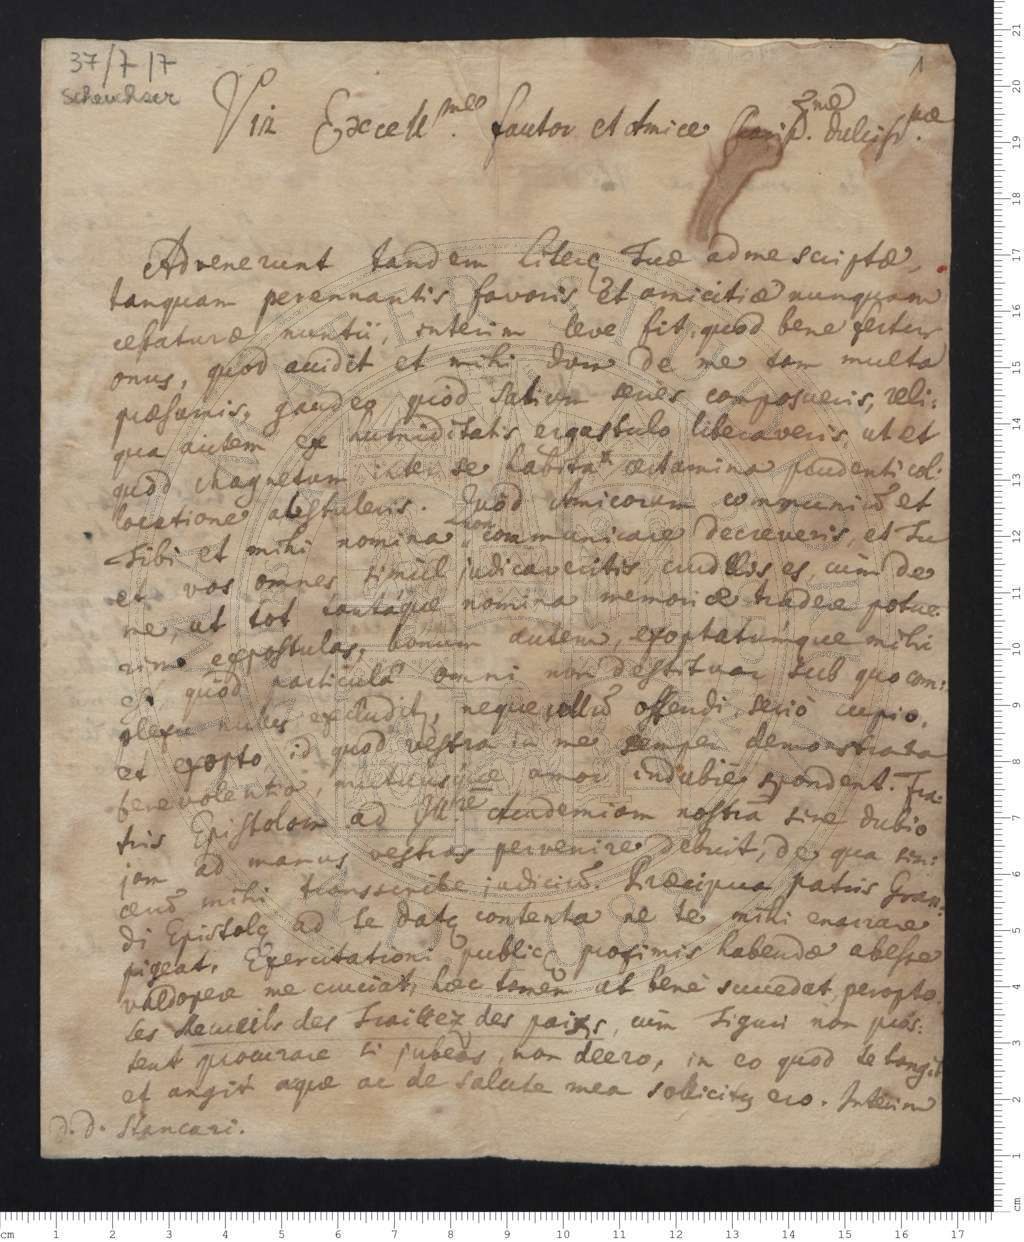 37/7/7
Scheuchzer
1
Vir Excell.me fautor et Amice dulciss.me
Advenerunt tandem literę Tuæ ad me scriptæ,
tanquam perennantis favoris et amicitiæ nunquam
cessaturæ nuntii, interim leve fit, quod bene fertur
onus, quod accidit et mihi dum de me tam multa
præsumis, gaudeo quod Salium seues composueris, reli:
qua autem ex humiditatis ergastulo liberaveris, ut et
quod Magnetum inter se habita certamina prudenti col:
locatione abstuleris. Quod Amicorum communiũ et
Tibi et mihi nomina non communicare decreveris, et Tu
et vos omnes simul judicaveritis, crudelis es, cùm de
me, ut tot tantáque nomina memoriæ tradere potue:
rim expostulas, bonum autem, exoptatúmque mihi
est, quòd particulâ omni non destituar sub quo com:
plexu nullus excluditur, neque ullũ offendi seriò cupio,
et exopto id quod vestra in me semper demonstrata
benevolentia, mutuusque amor indubiè spondent. Fra:
tris Epistolam ad Ill.re Academiam nostrã sine dubio
jam ad manus vestras pervenire debuit, de qua sin:
cerũ mihi transscribe judiciũ. Præcipua patris Gran:
di Epistolę ad te datę contenta ne te mihi enarrare
pigeat. Exercitationi publicę proximis habendæ abesse
valdopere me cruciat, hæc tamen ut bene succedat, peropto.
Les Recueils des Traittez des paix, cùm Tiguri non pros:
tent procurare si jubeas, non deero, in eo quod te tangit
et angit æque ac de salute mea sollicitus ero. Interim
d. d. Stancari.